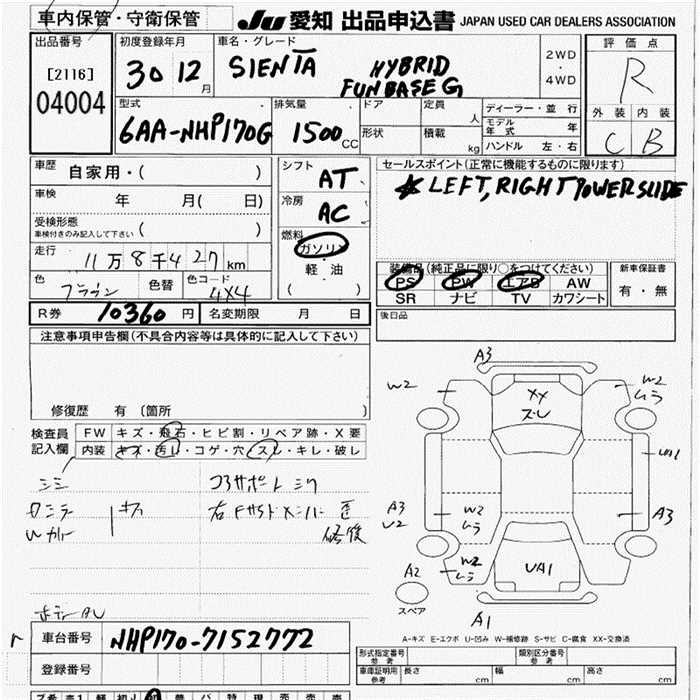 車内保管・守衛保管 JU 愛知 出品申込書 JAPAN USED CAR DEALERS ASSOCIATION
出品番号 初度登録年月 車名・グレード 評価点
[2116] 30 12月 SIENTA HYBRID 2WD・4WD R
04004 FUNBASE G
型式 排気量 ドア 定員 人 ディーラー・並行 外装 内装
6AA-NHP170G 1500cc 形状 積載 kg モデル年式 年 C B
ハンドル 左・右
車歴 自家用・( ) シフト AT セールスポイント(正常に機能するものに限ります)
車検 年 月( 日) 冷房 AC LEFT, RIGHT POWER SLIDE
受検形態 車検付きのみ記入して下さい ( ) 燃料 ガソリン
走行 11万8千427km 軽油 装備品(純正品に限り○をつけてください) 新車保証書
色 ブラウン 色替 色コード 4X4 ( ) PS PW エアB AW 有・無
SR ナビ TV カワシート
R券 10360円 名変期限 月 日 後日品
注意事項申告欄(不具合内容等は具体的に記入して下さい)
修復歴 有 (箇所 )
検査員記入欄 FW キズ・飛石・ヒビ割・リペア跡・X要
内装 キズ・汚レ・コゲ・穴・スレ・キレ・破レ
A3
W2 XX W2
ズレ ムラ
UA1
コアサポートシワ
A3 W2 A3
U2 ムラ
修復
W2
A2 ムラ UA1
スペア A1
A-キズ E-エクボ U-凹み W-補修跡 S-サビ C-腐食 XX-交換済
車台番号 NHP170-7152772 形式指定番号 参考 類別区分番号 参考
登録番号 車庫証明用 参考 長さ cm 幅 cm 高さ cm